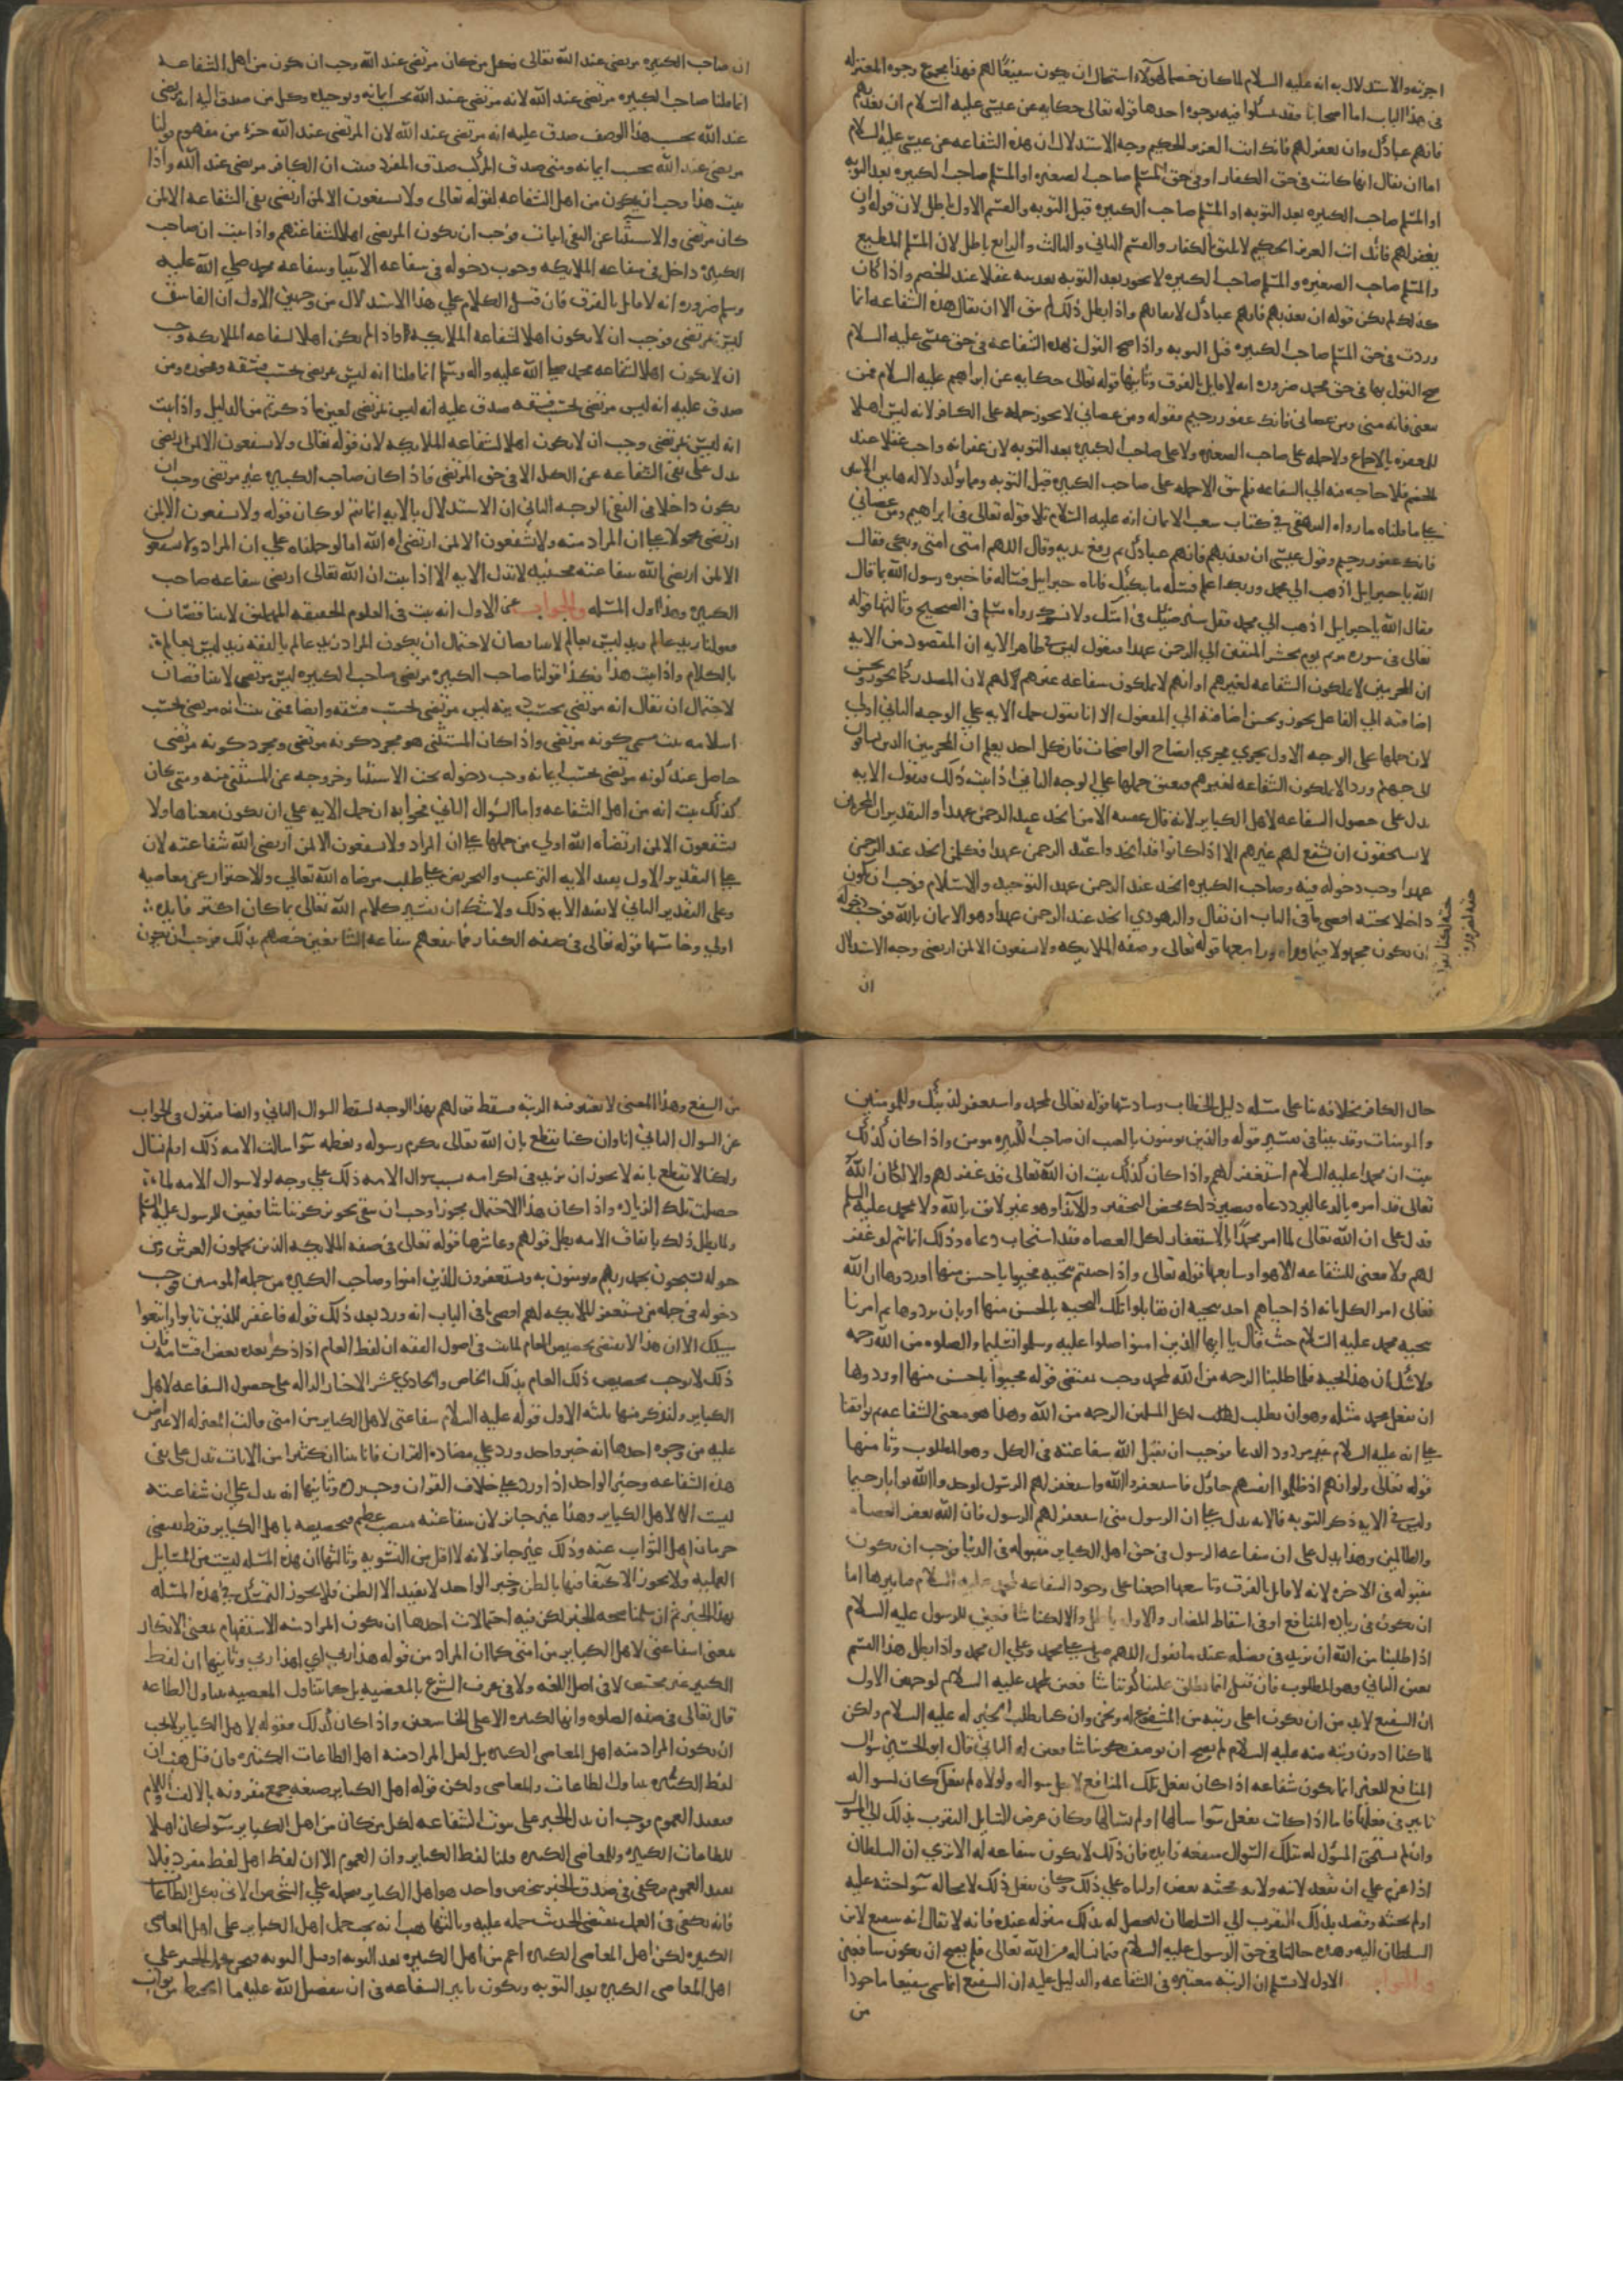 اجرته والاستدلال به انه عليه السلام لما كان خصما لهؤلاء استحال ان يكون شفيعا لهم فهذا مجموع وجوه المعتزله
فى هذا الباب اما اصحابنا فقد تمسكوا فيه بوجوه احدها قوله تعالى حكايه عن عيسى عليه السلام ان تعذبهم
فانهم عبادك وان تغفر لهم فانك انت العزيز الحكيم وجه الاستدلال ان هذه الشفاعه عن عيسى عليه السلام
اما ان يقال انها كانت فى حق الكفار او فى حق المسلم صاحب الصغيره او المسلم صاحب الكبيره بعد التوبه
او المسلم صاحب الكبيره بعد التوبه او المسلم صاحب الكبيره قبل التوبه والقسم الاول باطل لان قوله وان
يغفر لهم فانك انت العزيز الحكيم لا يليق بالكفار والقسم الثانى والثالث والرابع باطل لان المسلم المطيع
والمسلم صاحب الصغيره والمسلم صاحب الكبيره لا يجوز بعد التوبه تعذيبه عقلا عند الخصم واذا كان
كذلك لم يكن قوله ان تعذبهم فانهم عبادك لايقا بهم واذا بطل ذلك لم يبق الا ان يقال هذه الشفاعه انما
وردت فى حق المسلم صاحب الكبيره قبل التوبه واذا صح القول بهذه الشفاعه فى حق عيسى عليه السلام
صح القول بها فى حق محمد ضروره انه لا قايل بالفرق وثانيها قوله تعالى حكايه عن ابراهيم عليه السلام فمن
تبعنى فانه منى ومن عصانى فانك غفور رحيم فقوله ومن عصانى لا يجوز حمله على الكافر لانه ليس اهلا
للمغفره بالاجماع ولا حمله على صاحب الصغيره ولا على صاحب الكبيره بعد التوبه لان غفرانه واجب عقلا عند
الخصم فلا حاجه فيه الى الشفاعه فلم يبق الا حمله على صاحب الكبيره قبل التوبه ومما يؤكد دلاله هاتين الايتين
على ما قلناه ما رواه البيهقى فى كتاب شعب الايمان انه عليه السلام تلا قوله تعالى فى ابراهيم ومن عصانى
فانك غفور رحيم وقول عيسى ان تعذبهم فانهم عبادك ثم رفع يديه وقال اللهم امتى امتى وبكى فقال
الله يا جبرايل اذهب الى محمد وربك اعلم فسله ما يبكيك فاتاه جبرايل فساله فاخبره رسول الله بما قال
فقال الله يا جبرايل اذهب الى محمد فقل سنرضيك فى امتك ولا نسوءك رواه مسلم فى الصحيح وثالثها قوله
تعالى فى سوره مريم يوم نحشر المتقين الى الرحمن وفدا فنقول ليس فى ظاهر الايه ان المقصود من الايه
ان المجرمين لا يملكون الشفاعه لغيرهم او انهم لا يملكون شفاعه غيرهم لهم لان المصدر كما يجوز ويحسن
اضافته الى الفاعل يجوز ويحسن اضافته الى المفعول الا انا نقول حمل الايه على الوجه الثانى اولى
لان حملها على الوجه الاول يجرى مجرى ايضاح الواضحات فان كل احد يعلم ان المجرمين الذين يساقون
الى جهنم وردا لا يملكون الشفاعه لغيرهم فتعين حملها على الوجه الثانى اذا ثبت ذلك فنقول الايه
تدل على حصول الشفاعه لاهل الكباير لانه قال عقيبه الا من اتخذ عند الرحمن عهدا والتقدير ان المجرمين
لا يستحقون ان يشفع لهم غيرهم الا اذا كانوا قد اتخذوا عند الرحمن عهدا فكل من اتخذ عند الرحمن
عهدا وجب دخوله فيه وصاحب الكبيره اتخذ عند الرحمن عهد التوحيد والاسلام فوجب ان يكون
داخلا تحته اقصى ما فى الباب ان يقال واليهودى اتخذ عند الرحمن عهدا وهو الايمان بالله فوجب دخوله
ان يكون معمولا فيما وراه ورابعها قوله تعالى فى صفه الملايكه ولا يشفعون الا لمن ارتضى وجه الاستدلال
ان
ان صاحب الكبيره مرتضى عند الله تعالى وكل من كان مرتضى عند الله وجب ان يكون من اهل الشفاعه
انما قلنا صاحب الكبيره مرتضى عند الله لانه مرتضى عند الله بحسب ايمانه وتوحيده وكل من صدق عليه انه مرتضى
عند الله بحسب هذا الوصف صدق عليه انه مرتضى عند الله لان المرتضى عند الله جزء من مفهوم قولنا
مرتضى عند الله بحسب ايمانه ومتى صدق المركب صدق المفرد فثبت ان الكافر مرتضى عند الله واذا
ثبت هذا وجب ان يكون من اهل الشفاعه لقوله تعالى ولا يشفعون الا لمن ارتضى نفى الشفاعه الا لمن
كان مرتضى والاستثنا عن النفى اثبات فوجب ان يكون المرتضى اهلا لشفاعتهم واذا ثبت ان صاحب
الكبيره داخل فى شفاعه الملايكه وجب دخوله فى شفاعه الانبيا وشفاعه محمد صلى الله عليه
وسلم ضروره انه لا قايل بالفرق فان قيل الكلام على هذا الاستدلال من وجهين الاول ان الفاسق
ليس بمرتضى فوجب ان لا يكون اهلا لشفاعه الملايكه واذا لم يكن اهلا لشفاعه الملايكه وجب
ان لا يكون اهلا لشفاعه محمد صلى الله عليه واله وسلم انما قلنا انه ليس بمرتضى بحسب فسقه وفجوره ومن
صدق عليه انه ليس مرتضى بحسب فسقه صدق عليه انه ليس بمرتضى لعين ما ذكرتم من الدليل واذا ثبت
انه ليس بمرتضى وجب ان لا يكون اهلا لشفاعه الملايكه لان قوله تعالى ولا يشفعون الا لمن ارتضى
يدل على نفى الشفاعه عن الكل الا فى حق المرتضى فاذا كان صاحب الكبيره غير مرتضى وجب ان
يكون داخلا فى النفى الوجه الثانى ان الاستدلال بالايه انما يتم لو كان قوله ولا يشفعون الا لمن
ارتضى محمولا على ان المراد منه ولا يشفعون الا لمن ارتضاه الله اما لو حملناه على ان المراد ولا يشفعون
الا لمن ارتضى الله شفاعته فحينئذ لا تدل الايه الا اذا ثبت ان الله تعالى ارتضى شفاعه صاحب
الكبيره وهذا اول المسله والجواب عن الاول انه ثبت فى العلوم الحقيقيه المهملتين لا يتناقضان
فقولنا زيد عالم زيد ليس بعالم لا يتناقضان لاحتمال ان يكون المراد زيد عالم بالفقه زيد ليس بعالم
بالكلام واذا ثبت هذا فكذا قولنا صاحب الكبيره مرتضى صاحب الكبيره ليس بمرتضى لا يتناقضان
لاحتمال ان يقال انه مرتضى بحسب دينه ليس مرتضى بحسب فسقه وايضا فمتى ثبت انه مرتضى بحسب
اسلامه ثبت مسمى كونه مرتضى واذا كان المستثنى هو مجرد كونه مرتضى ومجرد كونه مرتضى
حاصل عند كونه مرتضى بحسب ايمانه وجب دخوله تحت الاستثنا وخروجه عن المستثنى منه ومتى كان
كذلك ثبت انه من اهل الشفاعه واما السؤال الثانى فجوابه ان حمل الايه على ان يكون معناها ولا
يشفعون الا لمن ارتضاه الله اولى من حملها على ان المراد ولا يشفعون الا لمن ارتضى الله شفاعته لان
على التقدير الاول تفيد الايه الترغيب والتحريض على طلب مرضاه الله تعالى والاحتراز عن معاصيه
وعلى التقدير الثانى لا تفيد الايه ذلك ولا شك ان تفسير كلام الله تعالى بما كان اكثر فايده
اولى وخامسها قوله تعالى فى صفه الكفار فما تنفعهم شفاعه الشافعين خصهم بذلك فوجب ان يكون
حال الكافر بخلافه بنا على مسله دليل الخطاب وسادسها قوله تعالى لمحمد واستغفر لذنبك وللمومنين
والمومنات وقد بينا فى تفسير قوله والذين يومنون بالغيب ان صاحب الكبيره مومن واذا كان كذلك
ثبت ان محمدا عليه السلام استغفر لهم واذا كان كذلك ثبت ان الله تعالى قد غفر لهم والا لكان الله
تعالى قد امره بالدعا ليرد دعاه فيصير ذلك محض التحقير والايذا وهو غير لايق بالله ولا بمحمد عليه السلام
فدل على ان الله تعالى لما امر محمدا بالاستغفار لكل العصاه فقد استجاب دعاه وذلك انما يتم لو غفر
لهم ولا معنى للشفاعه الا هو وسابعها قوله تعالى واذا حييتم بتحيه فحيوا باحسن منها او ردوها ان الله
تعالى امر الكل بانه اذا حياهم احد بتحيه ان يقابلوا تلك التحيه باحسن منها او بان يردوها ثم امرنا
بتحيه محمد عليه السلام حيث قال يا ايها الذين امنوا صلوا عليه وسلموا تسليما والصلوه من الله رحمه
ولا شك ان هذا تحيه فلما طلبنا الرحمه من الله لمحمد وجب بمقتضى قوله فحيوا باحسن منها او ردوها
ان يفعل محمد مثله وهو ان يطلب لكل المسلمين الرحمه من الله وهذا هو معنى الشفاعه ثم توافقنا
على انه عليه السلام غير مردود الدعا فوجب ان يقبل الله شفاعته فى الكل وهو المطلوب وثامنها
قوله تعالى ولو انهم اذ ظلموا انفسهم جاوك فاستغفروا الله واستغفر لهم الرسول لوجدوا الله توابا رحيما
وليس فى الايه ذكر التوبه فالايه تدل على ان الرسول متى استغفر لهم الرسول فان الله يغفر للعصاه
والظالمين وهذا يدل على ان شفاعه الرسول فى حق اهل الكباير مقبوله فى الدنيا فوجب ان تكون
مقبوله فى الاخره لانه لا قايل بالفرق وتاسعها اجمعنا على وجوب الشفاعه لمحمد عليه السلام فتاثيرها اما
ان يكون فى زياده المنافع او فى اسقاط المضار والاول باطل والا لكنا شافعين للرسول عليه السلام
اذا طلبنا من الله ان يزيد فى فضله عند ما نقول اللهم صل على محمد وعلى ال محمد واذا بطل هذا القسم
تعين الثانى وهو المطلوب فان قيل انما لا يطلق علينا كوننا شافعين لمحمد عليه السلام لوجهين الاول
ان الشفيع لا بد من ان يكون اعلى رتبه من المشفوع له ونحن وان كنا نطلب الخير له عليه السلام ولكن
لما كنا ادون رتبه منه عليه السلام لم يصح ان نوصف بكوننا شافعين له الثانى قال ابو الحسين سؤال
المنافع للغير انما يكون شفاعه اذا كان يفعل تلك المنافع لاجل سواله ولولاه لم يفعل كان لسواله
تاثير فى فعلها فاما اذا كانت تفعل سوا سالها او لم يسالها وكان غرض السايل التقرب بذلك الى المسول
وان لم يستحق المسؤل له بتلك السوال منفعه زايده فان ذلك لا يكون شفاعه له الا ترى ان السلطان
اذا عزم على ان يعقد لابنه ولايه فحثه بعض اوليائه على ذلك وكان يفعل ذلك لا محاله سوا حثه عليه
او لم يحثه وقصد بذلك التقرب الى السلطان ليحصل له بذلك منزله عنده فانه لا يقال انه يشفع لابن
السلطان اليه وهذه حالتنا فى حق الرسول عليه السلام فيما نساله من الله تعالى فلم يصح ان نكون شافعين
والجواب الاول لا نسلم ان الرتبه معتبره فى الشفاعه والدليل عليه ان الشفيع انما سمى شفيعا ماخوذا
من
من الشفع وهذا المعنى لا تعتبر فيه الرتبه فسقط قولهم بهذا الوجه لسقط السوال الثانى وايضا فنقول فى الجواب
عن السوال الثانى انا وان كنا نقطع بان الله تعالى يكرم رسوله ويعظمه سوا سالت الامه ذلك او لم تسال
ولكنا لا نقطع بانه لا يجوز ان يزيد فى اكرامه بسبب سوال الامه ذلك على وجه لولا سوال الامه لما
حصلت تلك الزياده واذا كان هذا الاحتمال مجوزا وجب ان يبقى تجويز كوننا شافعين للرسول عليه السلام
ولما بطل ذلك باتفاق الامه بطل قولهم وعاشرها قوله تعالى فى صفه الملايكه الذين يحملون العرش ومن
حوله يسبحون بحمد ربهم ويومنون به ويستغفرون للذين امنوا وصاحب الكبيره من جمله المومنين فوجب
دخوله فى جمله من تستغفر الملايكه لهم اقصى ما فى الباب انه ورد بعد ذلك قوله فاغفر للذين تابوا واتبعوا
سبيلك الا ان هذا لا يقتضى تخصيص العام لما ثبت فى اصول الفقه ان لفظ العام اذا ذكر بعده بعض اقسامه فان
ذلك لا يوجب تخصيص ذلك العام بذلك الخاص والحادى عشر الاخبار الداله على حصول الشفاعه لاهل
الكباير ولنذكر منها ثلثه الاول قوله عليه السلام شفاعتى لاهل الكباير من امتى قالت المعتزله الاعتراض
عليه من وجوه احدها انه خبر واحد ورد على مضاده القران فانا بينا ان كثيرا من الايات تدل على نفى
هذه الشفاعه وخبر الواحد اذا ورد على خلاف القران وجب رده وثانيها انه يدل على ان شفاعته
ليست الا لاهل الكباير وهذا غير جايز لان شفاعته منصب عظيم فتخصيصه باهل الكباير فقط يقتضى
حرمان اهل الثواب عنه وذلك غير جايز لانه لا اقل من التسويه وثالثها ان هذه المسله ليست من المسايل
العمليه ولا يجوز الاكتفا فيها بالظن وخبر الواحد لا يفيد الا الظن فلا يجوز التمسك فى هذه المسله
بهذا الخبر ثم ان سلمنا صحه الخبر لكن فيه احتمالات احدها ان يكون المراد منه الاستفهام بمعنى الانكار
يعنى اشفاعتى لاهل الكباير من امتى كما ان المراد من قوله هذا ربى اى اهذا ربى وثانيها ان لفظ
الكبير غير مختص لا فى اصل اللغه ولا فى عرف الشرع بالمعصيه بل كما يتناول المعصيه يتناول الطاعه
قال تعالى فى صفه الصلوه وانها لكبيره الا على الخاشعين واذا كان كذلك فقوله لاهل الكباير لا يجب
ان يكون المراد منه اهل المعاصى الكبيره بل لعل المراد منه اهل الطاعات الكبيره فان قيل هب ان
لفظ الكبيره يتناول الطاعات والمعاصى ولكن قوله اهل الكباير صيغه جمع مقرونه بالالف واللام
فيفيد العموم فوجب ان يدل الخبر على ثبوت الشفاعه لكل من كان من اهل الكباير سوا كان اهلا
للطاعات الكبيره والمعاصى الكبيره قلنا لفظ الكباير وان للعموم الا ان لفظ اهل لفظ مفرد فلا
يفيد العموم فيكفى فى صدق الخبر شخص واحد هو اهل الكباير فنحمله على الشخص الاتى بكل الطاعات
فانه يكفى فى العمل بمقتضى الحديث حمله عليه وثالثها هب انه يجب حمل اهل الكباير على اهل المعاصى
الكبيره لكن اهل المعاصى الكبيره اعم من اهل الكبيره بعد التوبه او قبل التوبه ونحن نحمل الخبر على
اهل المعاصى الكبيره بعد التوبه ويكون تاثير الشفاعه فى ان يتفضل الله عليه بما انحبط من ثواب